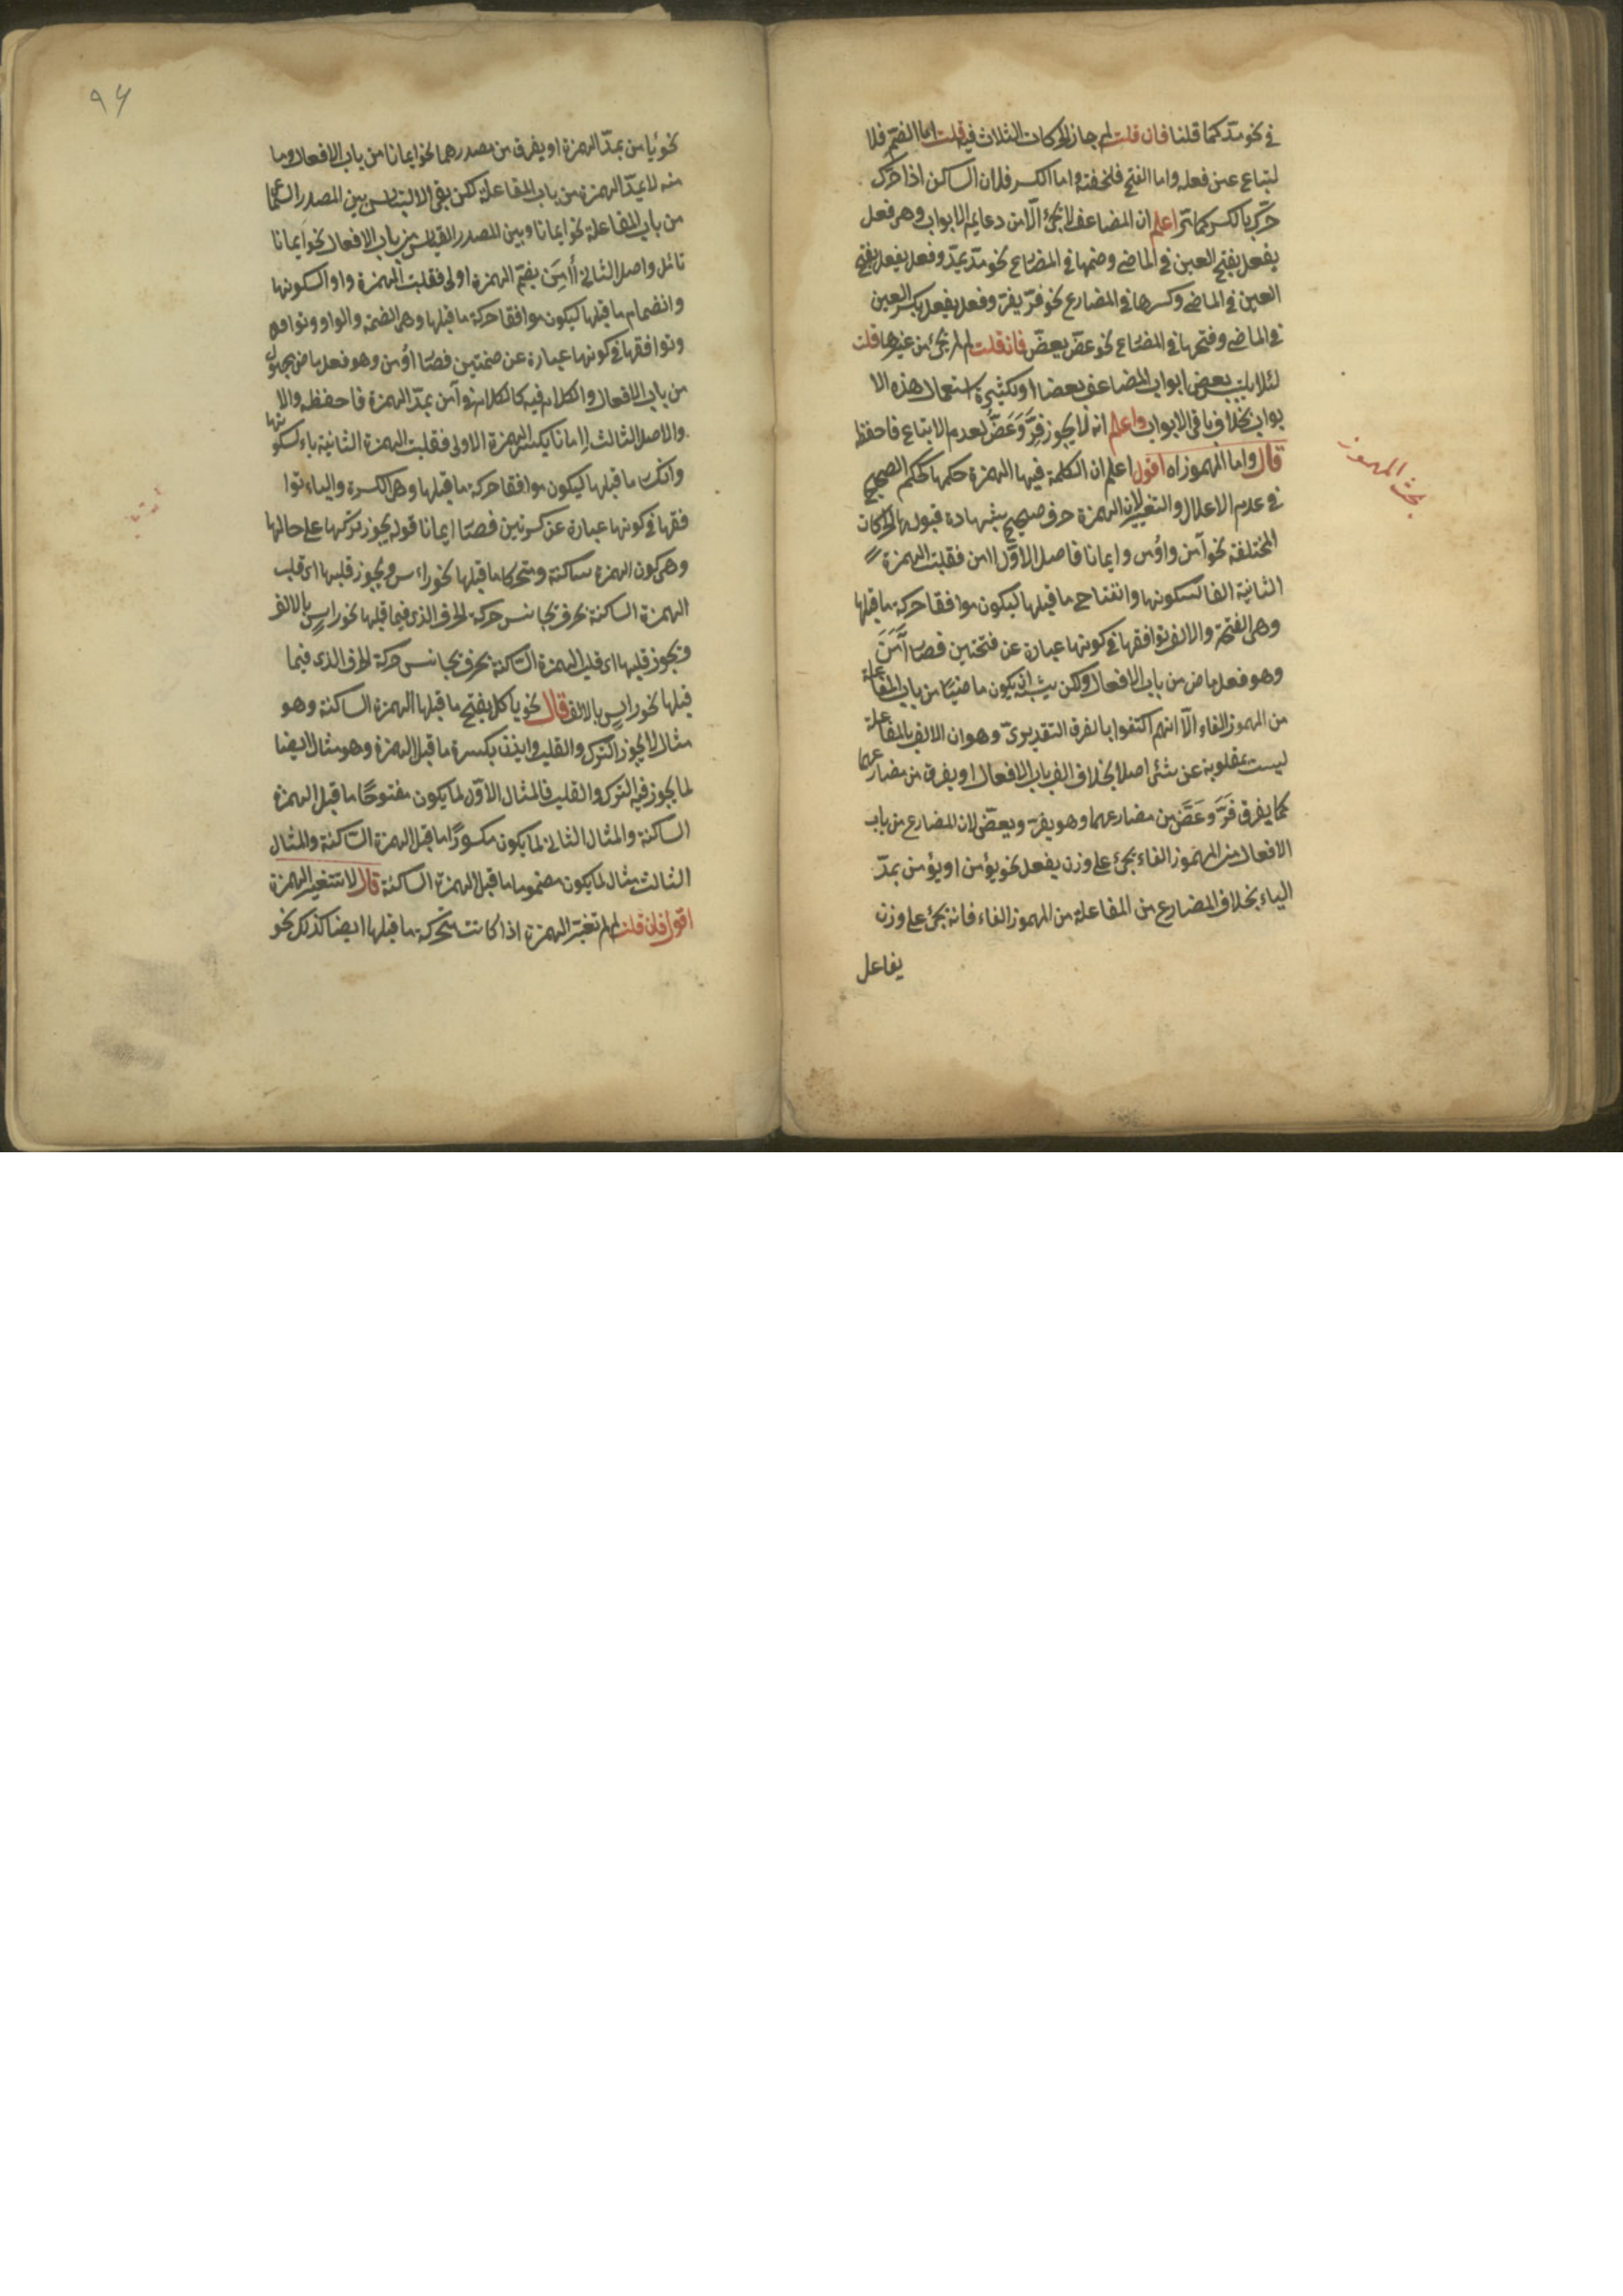 في نحو مدّ كما قلنا فان قلت لم جاز الحركات الثلاث فيه قلت اما الضم فلا
لتباع عين فعله واما الفتح فلخفته واما الكسر فلان الساكن اذا حرك
حرّك بالكسر كما مرّ اعلم ان المضاعف لا يجئ الّا من دعايم الابواب وهى فعل
يفعل بفتح العين في الماضي وضمها في المضارع نحو مدّ يمدّ وفعل يفعل بفتح
العين في الماضي وكسرها في المضارع نحو فرّ يفرّ وفعل يفعل بكسر العين
في الماضي وفتحها في المضارع نحو عضّ يعضّ فان قلت لم لم يجئ من غيرها قلت
لئلا يلتبس بعض ابواب المضاعف بعضا او لكثيرة استعمال هذه الا
بواب بخلاف باقي الابواب واعلم انه لا يجوز فِرَّ وَعَضَّ لعدم الاتباع فاحفظ
قال واما المهموز اه اقول اعلم ان الكلمة فيها الهمزة حكمها كحكم الصحيح
في عدم الاعلال والتغيير لان الهمزة حرف صحيح بشهادة قبولها الحركات
المختلفة نحو آمن واؤمن وايمانا فاصل الاوّل اامن فقلبت الهمزة
الثانية الفا لسكونها وانفتاح ما قبلها ليكون موافقا حركة ما قبلها
وهى الفتحة والالف توافقها في كونها عبارة عن فتحتين فصار آمَنَ
وهو فعل ماض من باب الافعال ولكن يشبه ان يكون ماضيًا من باب المفاعلة
من المهموز الفاء الّا انهم اكتفوا بالفرق التقديرىّ وهو ان الالف بالمفاعلة
ليست بمقلوبة عن شئ اصلا بخلاف الف باب الافعال او يفرق من مضارعهما
كما يفرق فَرَّ وَعَضَّ من مضارعهما وهو يفرّ ويعضّ لان المضارع من باب
الافعال من المهموز الفاء يجئ على وزن يفعل نحو يؤمن او يؤمن بمدّ
الياء بخلاف المضارع من المفاعلة من المهموز الفاء فانه يجئ على وزن
يفاعل
بحث المهموز
٩٤
نحو يُأمن بمدّ الهمزة او يفرق من مصدرهما نحو ايمانا من باب الافعال وما
منه لا يمدّ الهمزة من باب المفاعلة لكن بقى الالتباس بين المصدر السماعى
من باب المفاعلة نحو ايمانا وبين المصدر القياس من باب الافعال نحو ايمانا
تامّل واصل الثاني أُامِنَ بضم الهمزة اولى فقلبت الهمزة واوا لسكونها
وانضمام ما قبلها ليكون موافقا حركة ما قبلها وهى الضمة والواو
وتوافقها في كونها عبارة عن ضمتين فصار اؤمن وهو فعل ماض مجهول
من باب الافعال والكلام فيه كالكلام في آمن بمدّ الهمزة فاحفظه والا
والاصل الثالث إِامانا بكسر الهمزة الاولى فقلبت الهمزة الثانية ياء لسكونها
وانكسار ما قبلها ليكون موافقا حركة ما قبلها وهى الكسرة والياء توا
فقها في كونها عبارة عن كسرتين فصار ايمانا قوله يجوز تركها على حالها
وهى كون الهمزة ساكنة ومتحركا ما قبلها نحو راس ويجوز قلبها اى قلب
الهمزة الساكنة بحرف يجانس حركة الحرف الذى فيما قبلها نحو راس بالالف
ويجوز قلبها اى قلب الهمزة الساكنة بحرف يجانس حركة الحرف الذى فيما
قبلها نحو راس بالالف قال نحو ياكل بفتح ما قبلها الهمزة الساكنة وهو
مثال لما يجوز الترك والقلب وايذن بكسرة ما قبل الهمزة وهو مثال ايضا
لما يجوز فيه الترك والقلب فالمثال الاوّل لما يكون مفتوحًا ما قبل الهمزة
الساكنة والمثال الثانى لما يكون مكسورًا ما قبل الهمزة الساكنة والمثال
الثالث مثال لما يكون مضموما ما قبل الهمزة الساكنة قال لا تتغير الهمزة
اقول فان قلت لم لم تغيّر الهمزة اذا كانت متحركة ما قبلها ايضا كذلك نحو